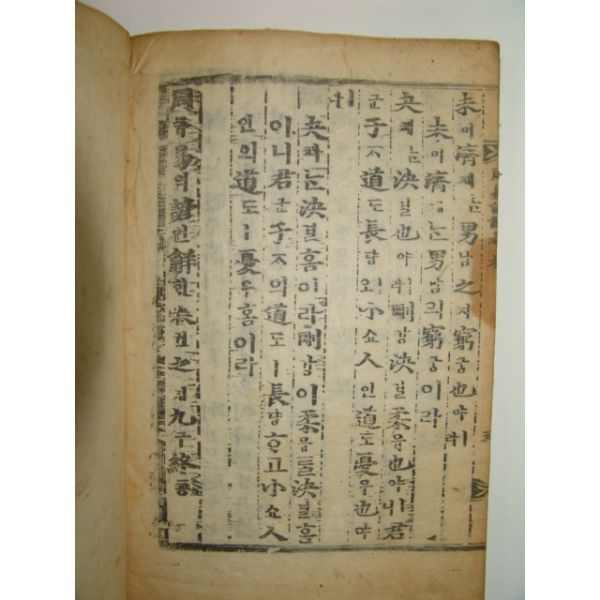 未미濟졔ᄂᆞᆫ男남之지窮궁也야ㅣ라
未미濟졔ᄂᆞᆫ男남의窮궁이라
夬쾌ᄂᆞᆫ決결也야ㅣ라剛강決결柔유也야ㅣ니君
군子ᄌᆞ道도長댱오小쇼人인道도憂우也야
ㅣ라
夬쾌ᄂᆞᆫ決결홈이라剛강이柔유ᄅᆞᆯ決결홈
이니君군子ᄌᆞ의道도ㅣ長댱ᄒᆞ고小쇼人
인의道도ㅣ憂우홈이라
周쥬易역諺언解ᄒᆡ卷권之지九구終죵